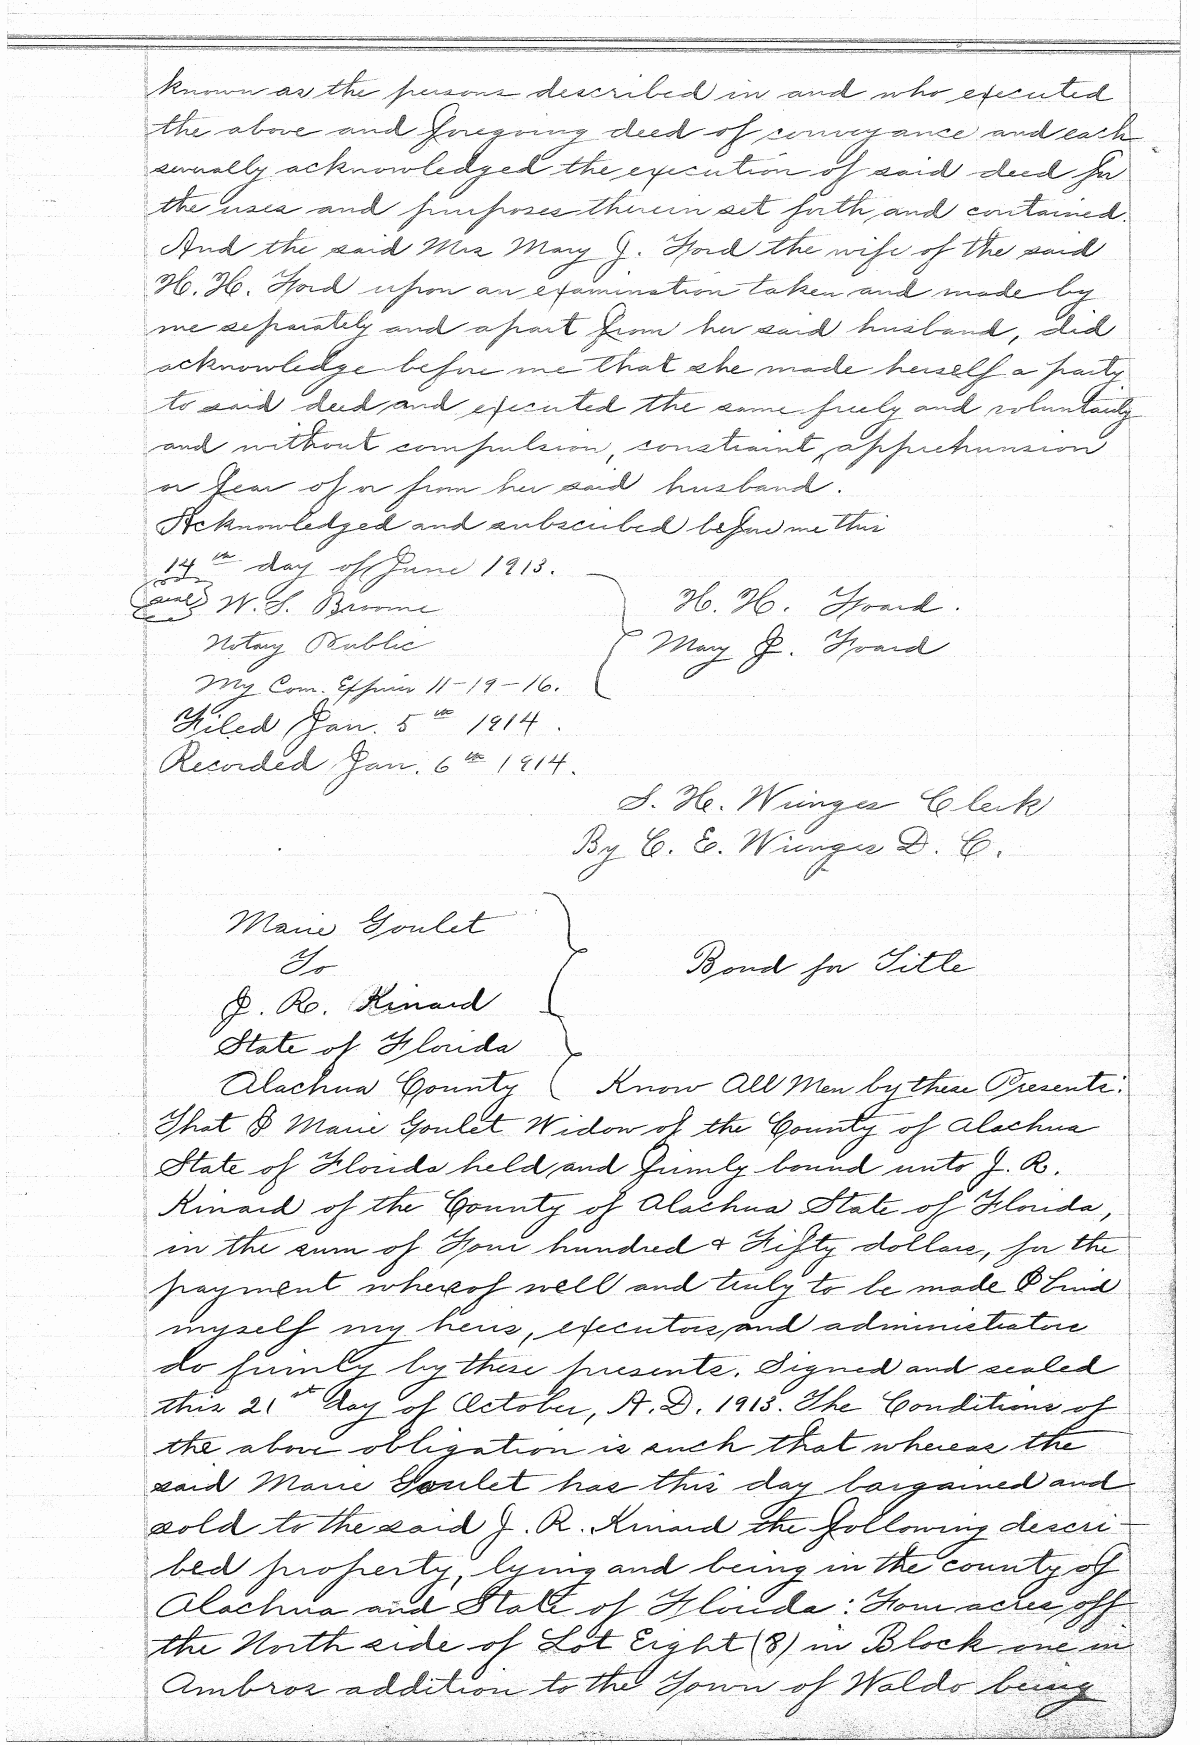 known as the persons described in and who executed
the above and foregoing deed of conveyance and each
severally acknowledged the execution of said deed for
the uses and purposes therein set forth and contained.
And the said Mrs Mary J. Ford the wife of the said
H. H. Ford upon an examination taken and made by
me separately and apart from her said husband, did
acknowledge before me that she made herself a party
to said deed and executed the same freely and voluntarily
and without compulsion, constraint, apprehension
or fear of or from her said husband.
Acknowledged and subscribed before me this
14th day of June 1913.
(seal) W. S. Broome
H. H. Foard.
Notary Public
Mary J. Foard
My Com. Expires 11-19-16.
Filed Jan. 5th 1914.
Recorded Jan. 6th 1914.
S. H. Wienges Clerk
By C. E. Wienges D. C.
Marie Goulet
To
Bond for Title
J. R. Kinard
State of Florida
Alachua County Know All Men by these Presents:
That I Marie Goulet Widow of the County of Alachua
State of Florida held and firmly bound unto J. R.
Kinard of the County of Alachua State of Florida,
in the sum of Four hundred & Fifty dollars, for the
payment whereof well and truly to be made I bind
myself my heirs, executors, and administrators
do firmly by these presents. Signed and sealed
this 21st day of October, A. D. 1913. The Conditions of
the above obligation is such that whereas the
said Marie Goulet has this day bargained and
sold to the said J. R. Kinard the following descri-
bed property, lying and being in the county of
Alachua and State of Florida: Four acres off
the North side of Lot Eight (8) in Block one in
Ambros addition to the Town of Waldo being